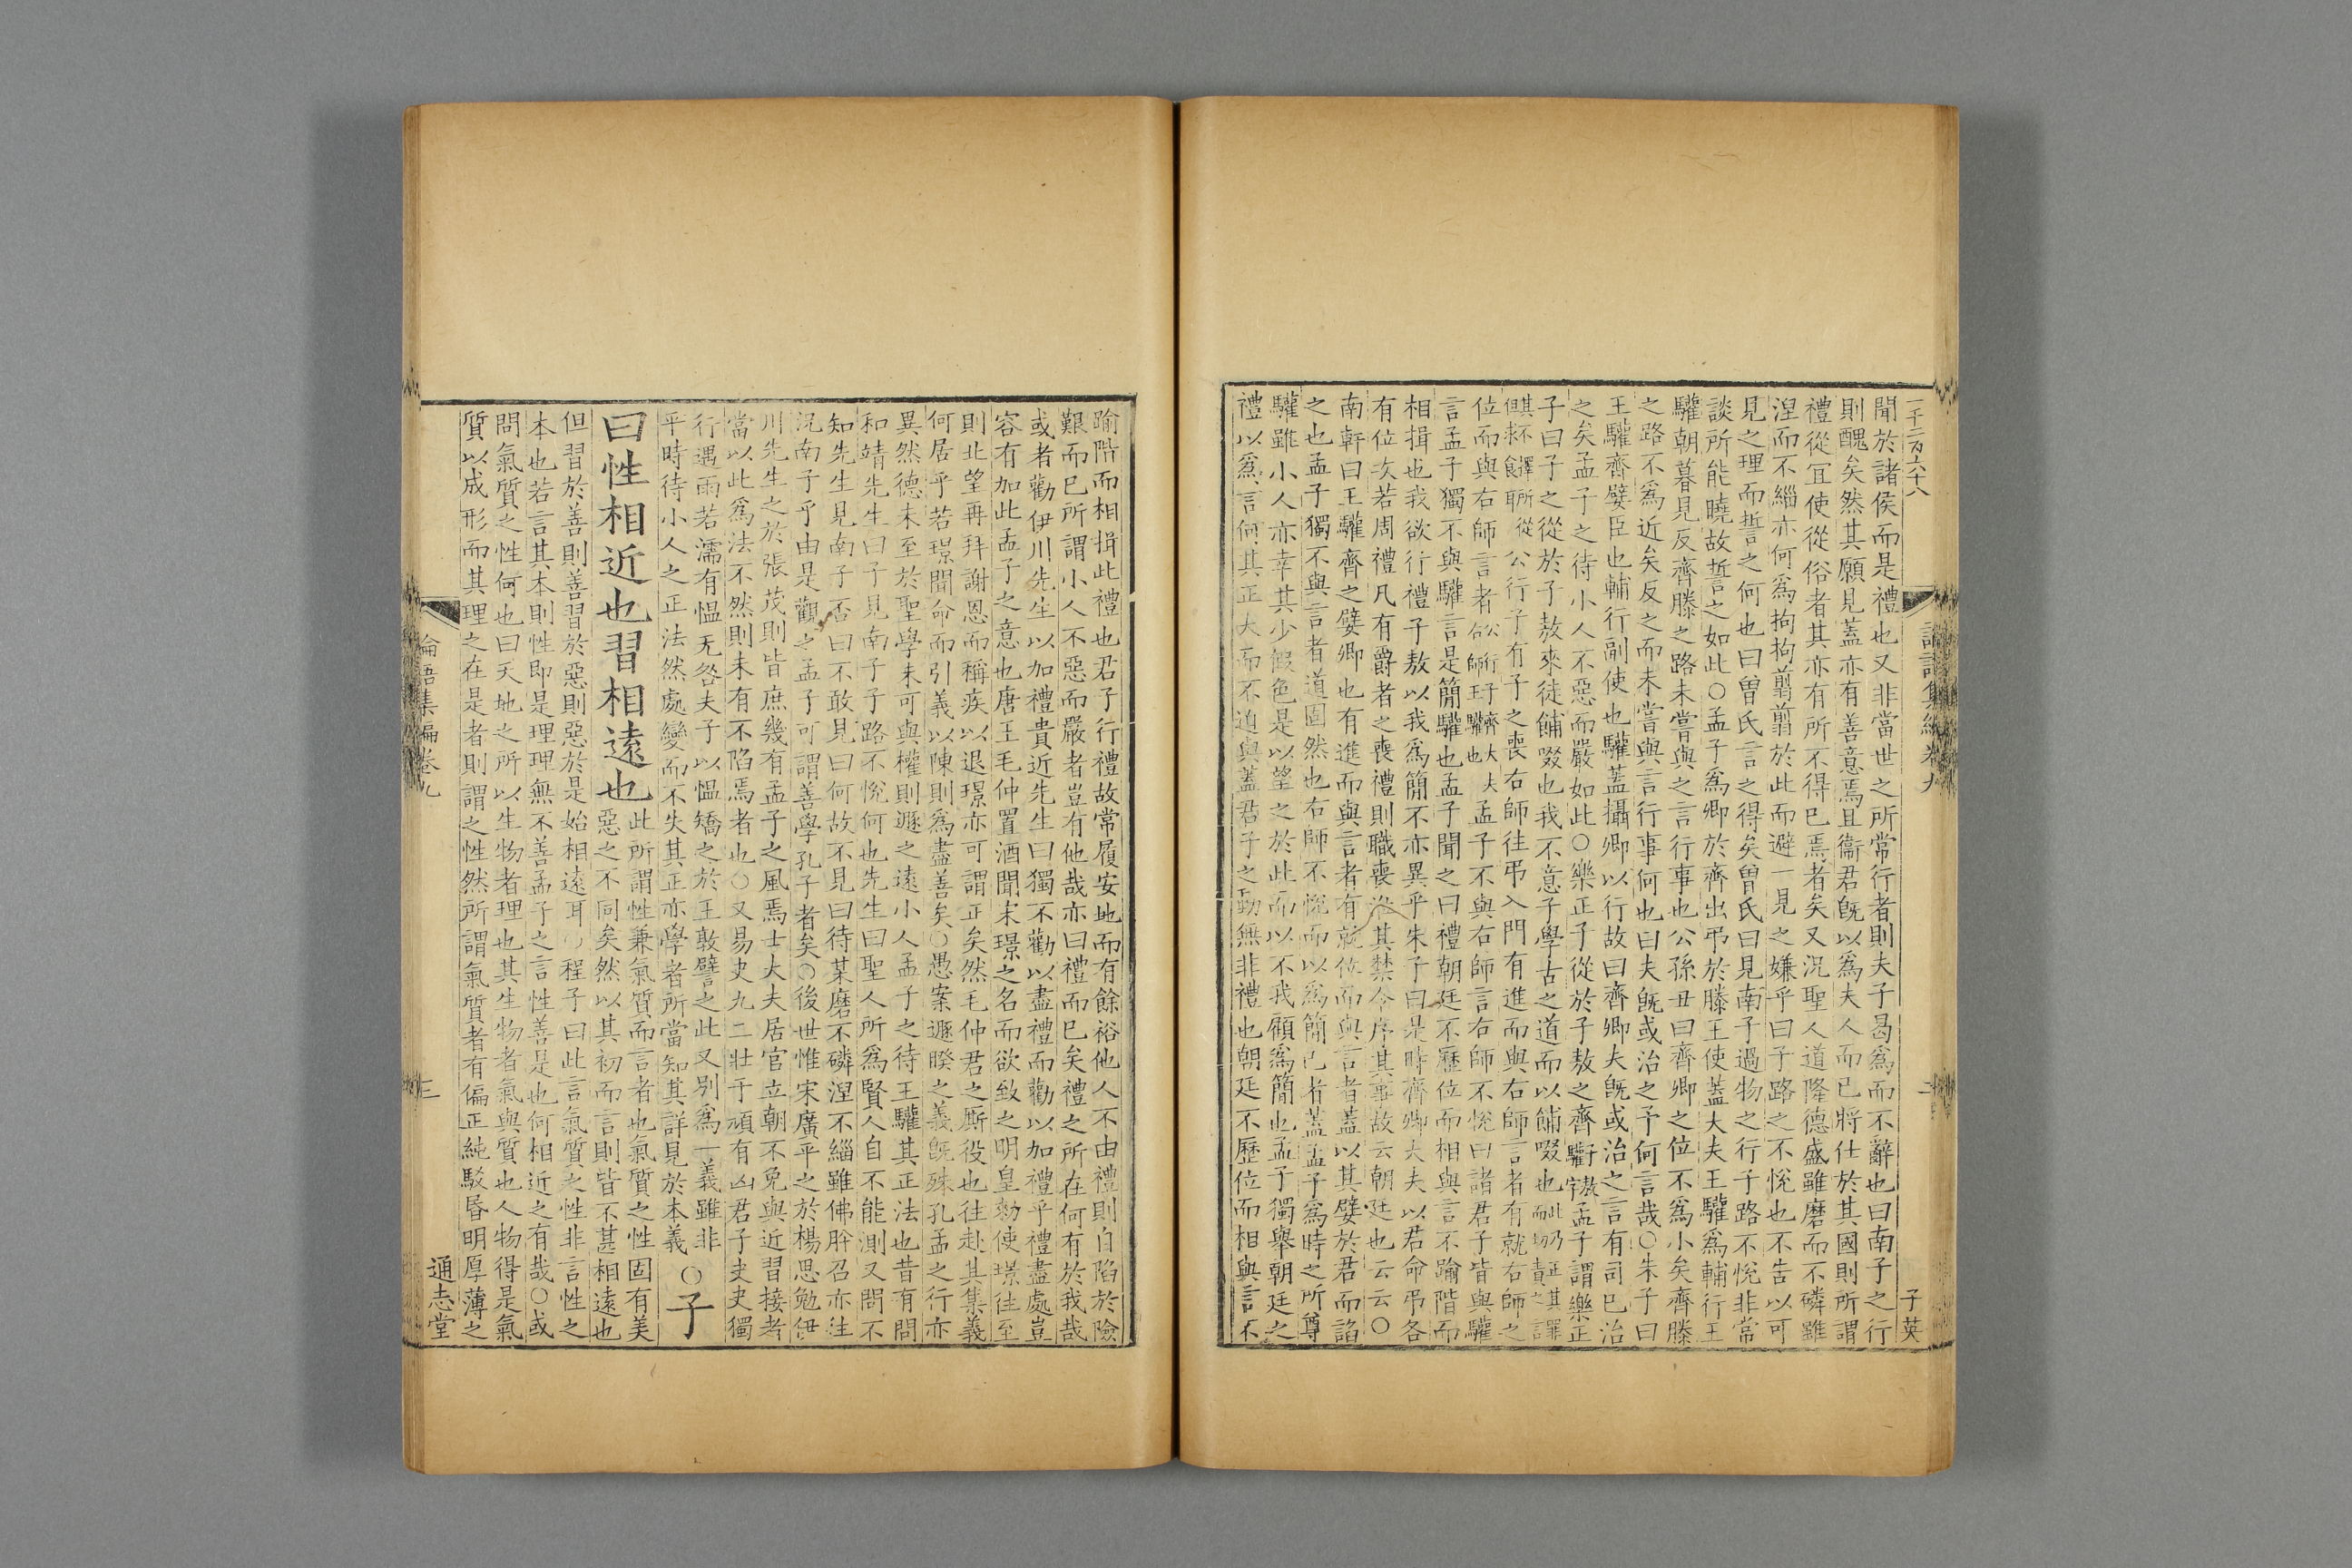 一千二百六十八
論語集編卷九
二
子英
聞於諸侯而是禮也又非當世之所常行者則夫子曷爲而不辭也曰南子之行
則醜矣然其願見蓋亦有善意焉且衞君旣以爲夫人而已將仕於其國則所謂
禮從宜使從俗者其亦有所不得已焉者矣又況聖人道隆德盛雖磨而不磷雖
涅而不緇亦何爲拘拘翦翦於此而避一見之嫌乎曰子路之不悅也不告以可
見之理而誓之何也曰曾氏言之得矣曾氏曰見南子過物之行子路不悅非常
談所能曉故誓之如此○孟子爲卿於齊出弔於滕王使蓋大夫王驩爲輔行王
驩朝暮見反齊滕之路未嘗與之言行事也公孫丑曰齊卿之位不爲小矣齊滕
之路不爲近矣反之而未嘗與言行事何也曰夫旣或治之予何言哉○朱子曰
王驩齊嬖臣也輔行副使也驩蓋攝卿以行故曰齊卿夫旣或治之言有司已治
之矣孟子之待小人不惡而嚴如此○樂正子從於子敖之齊孟子謂樂正
子曰子之從於子敖來徒餔啜也我不意子學古之道而以餔啜也
公行子有子之喪右師往弔入門有進而與右師言者有就右師之
位而與右師言者孟子不與右師言右師不悅曰諸君子皆與驩
言孟子獨不與驩言是簡驩也孟子聞之曰禮朝廷不歷位而相與言不踰階而
相揖也我欲行禮子敖以我爲簡不亦異乎朱子曰是時齊卿大夫以君命弔各
有位次若周禮凡有爵者之喪禮則職喪涖其禁令序其事故云朝廷也云云○
南軒曰王驩齊之嬖卿也有進而與言者有就位而與言者蓋以其嬖於君而諂
之也孟子獨不與言者道固然也右師不悅而以爲簡己者蓋孟子爲時之所尊
驩雖小人亦幸其少假色是以望之於此而以不我顧爲簡也孟子獨舉朝廷之
禮以爲言何其正大而不迫與蓋君子之動無非禮也朝廷不歷位而相與言不
踰階而相揖此禮也君子行禮故常履安地而有餘裕他人不由禮則自陷於險
艱而已所謂小人不惡而嚴者豈有他哉亦曰禮而已矣禮之所在何有於我哉
或者勸伊川先生以加禮貴近先生曰獨不勸以盡禮而勸以加禮乎禮盡處豈
容有加此孟子之意也唐王毛仲置酒聞宋璟之名而欲致之明皇勑使璟往至
則北望再拜謝恩而稱疾以退璟亦可謂正矣然毛仲君之廝役也往赴其集義
何居乎若璟聞命而引義以陳則爲盡善矣○愚案遯睽之義旣殊孔孟之行亦
異然德未至於聖學未可與權則遯之遠小人孟子之待王驩其正法也昔有問
和靖先生曰子見南子子路不悅何也先生曰聖人所爲賢人自不能測又問不
知先生見南子否曰不敢見曰何故不見曰待某磨不磷涅不緇雖佛肸召亦往
況南子乎由是觀之孟子可謂善學孔子者矣○後世惟宋廣平之於楊思勉伊
川先生之於張茂則皆庶幾有孟子之風焉士大夫居官立朝不免與近習接者
當以此爲法不然則未有不陷焉者也○又易夬九二壯于頄有凶君子夬夬獨
行遇雨若濡有慍无咎夫子以慍矯之於王敦譬之此又別爲一義雖非
平時待小人之正法然處變而不失其正亦學者所當知其詳見於本義　○子
曰性相近也習相遠也此所謂性兼氣質而言者也氣質之性固有美
惡之不同矣然以其初而言則皆不甚相遠也
但習於善則善習於惡則惡於是始相遠耳○程子曰此言氣質之性非言性之
本也若言其本則性即是理理無不善孟子之言性善是也何相近之有哉○或
問氣質之性何也曰天地之所以生物者理也其生物者氣與質也人物得是氣
質以成形而其理之在是者則謂之性然所謂氣質者有偏正純駁昏明厚薄之
論語集編卷九
三
通志堂